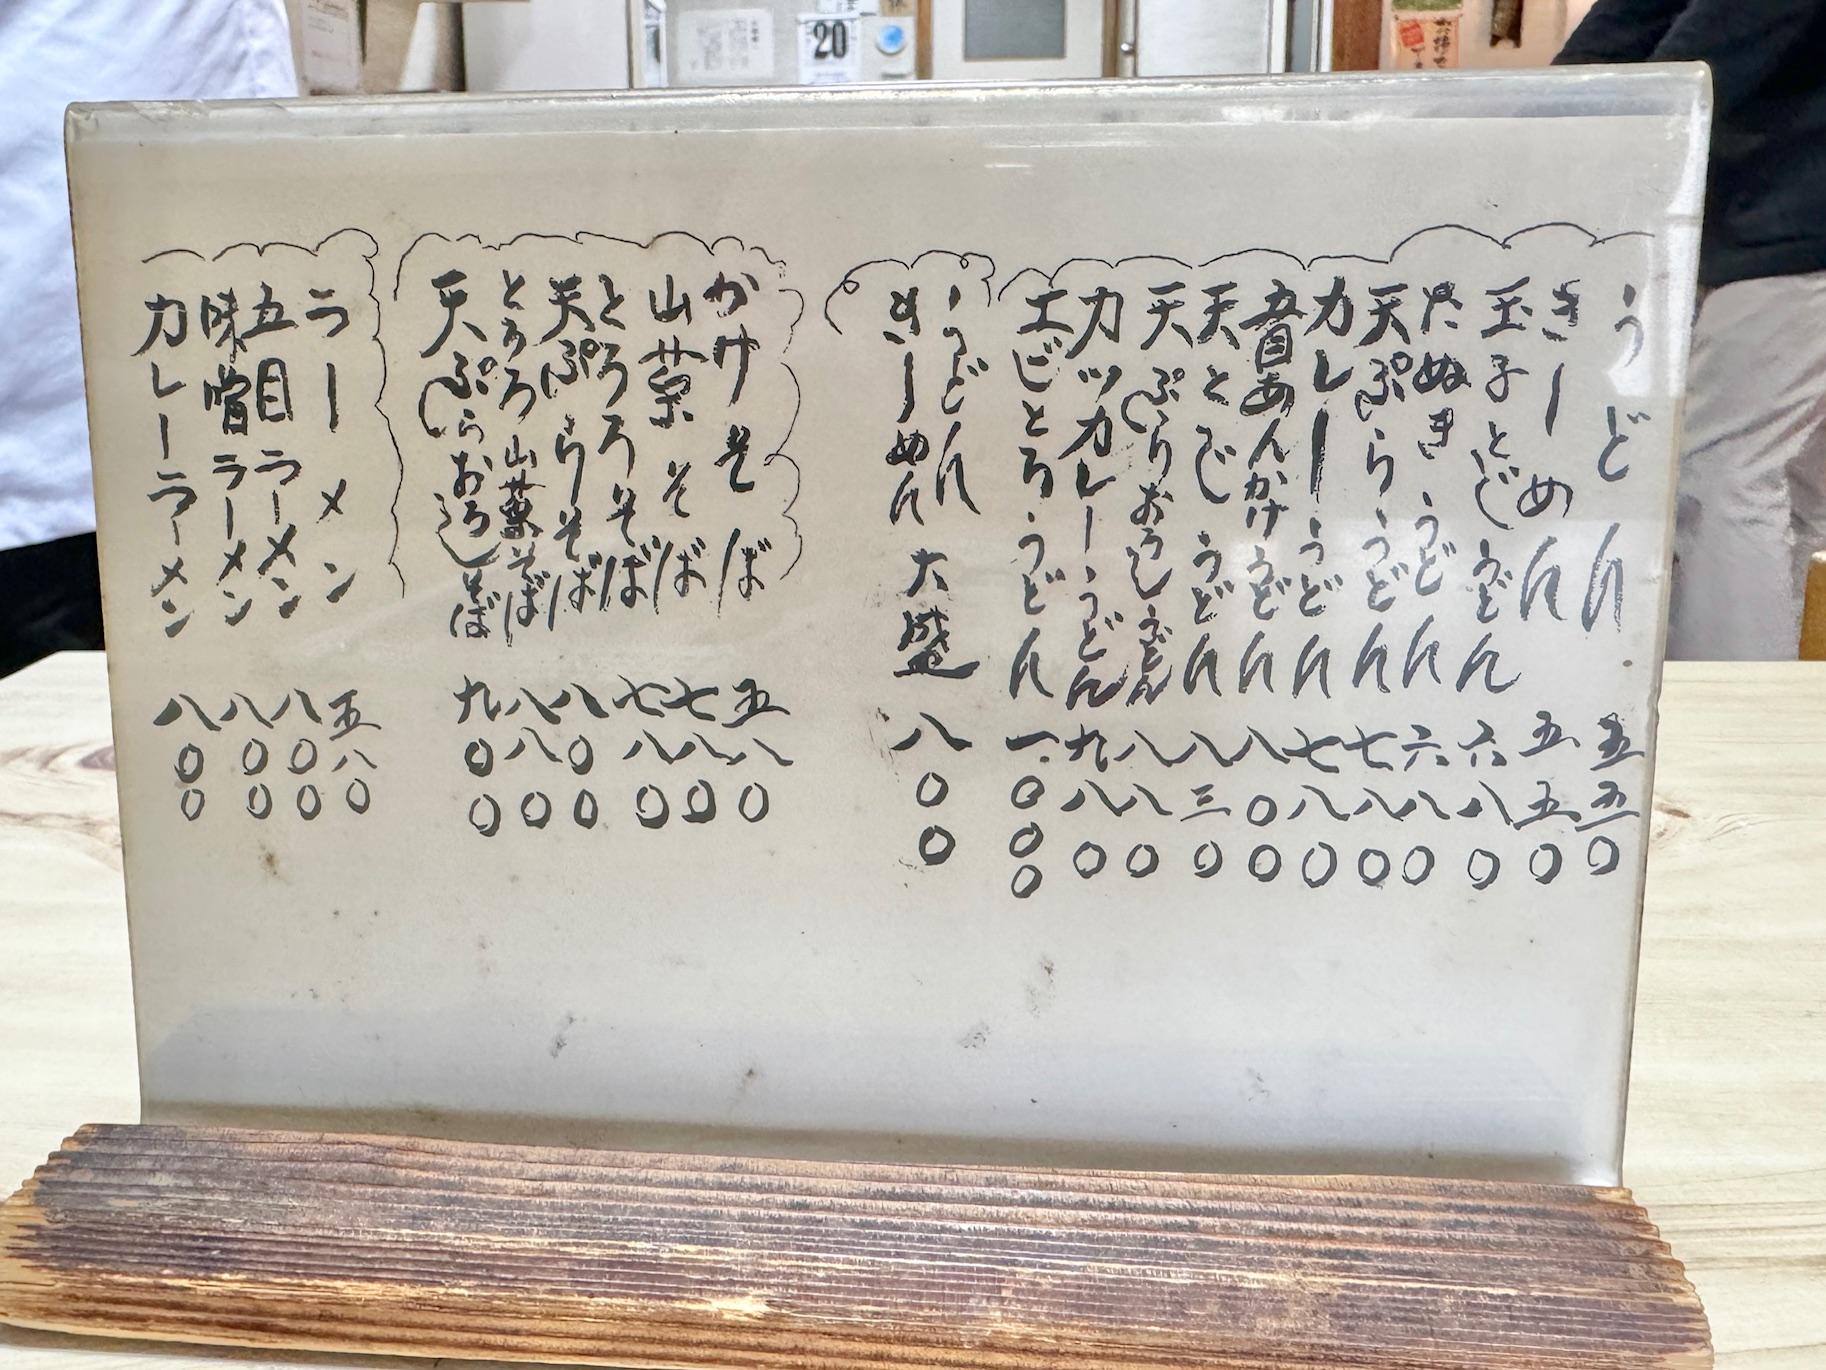 うどん 五五〇
きしめん 五五〇
玉子とじうどん 六八〇
たぬきうどん 六八〇
天ぷらうどん 七八〇
カレーうどん 七八〇
五目あんかけうどん 八〇〇
天とじうどん 八三〇
天ぷらおろしうどん 八八〇
カツカレーうどん 九八〇
エビとろうどん 一.〇〇〇
うどん
きしめん 大盛 八〇〇
かけそば 五八〇
山菜そば 七八〇
とろろそば 七八〇
天ぷらそば 八〇〇
とろろ山菜そば 八八〇
天ぷらおろしそば 九〇〇
ラーメン 五八〇
五目ラーメン 八〇〇
味噌ラーメン 八〇〇
カレーラーメン 八〇〇
20